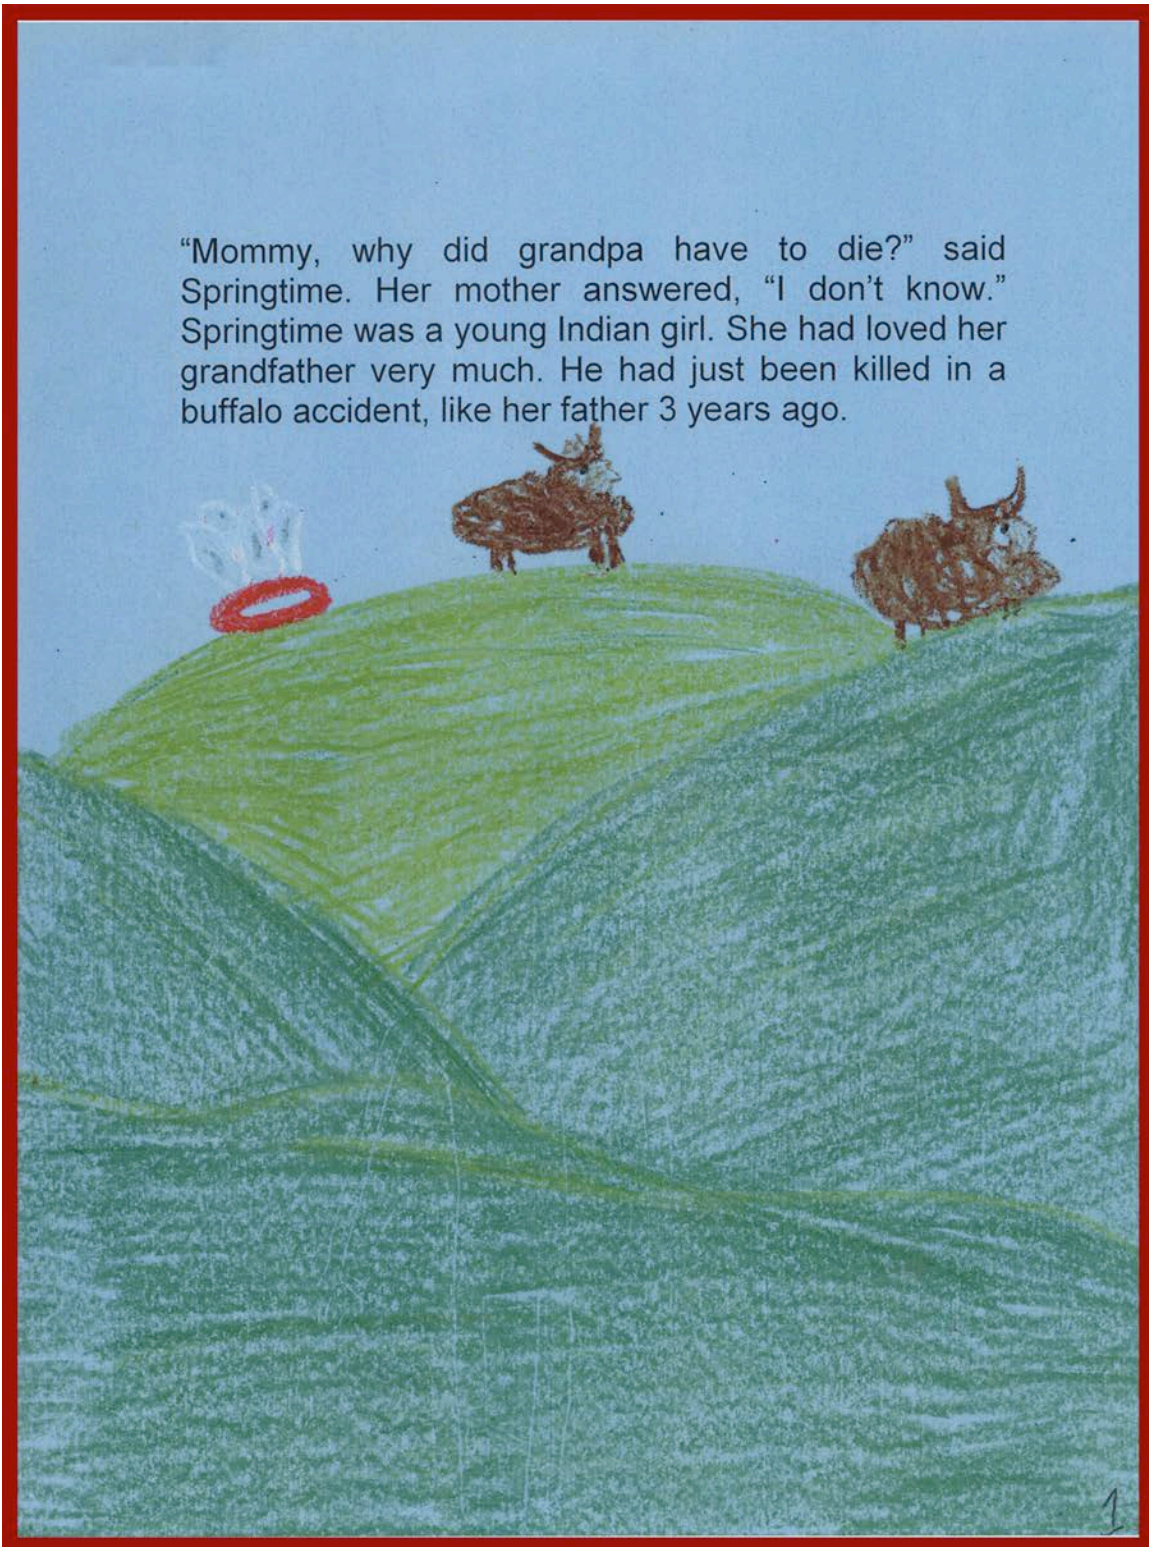 “Mommy, why did grandpa have to die?” said
Springtime. Her mother answered, “I don’t know.”
Springtime was a young Indian girl. She had loved her
grandfather very much. He had just been killed in a
buffalo accident, like her father 3 years ago.
1